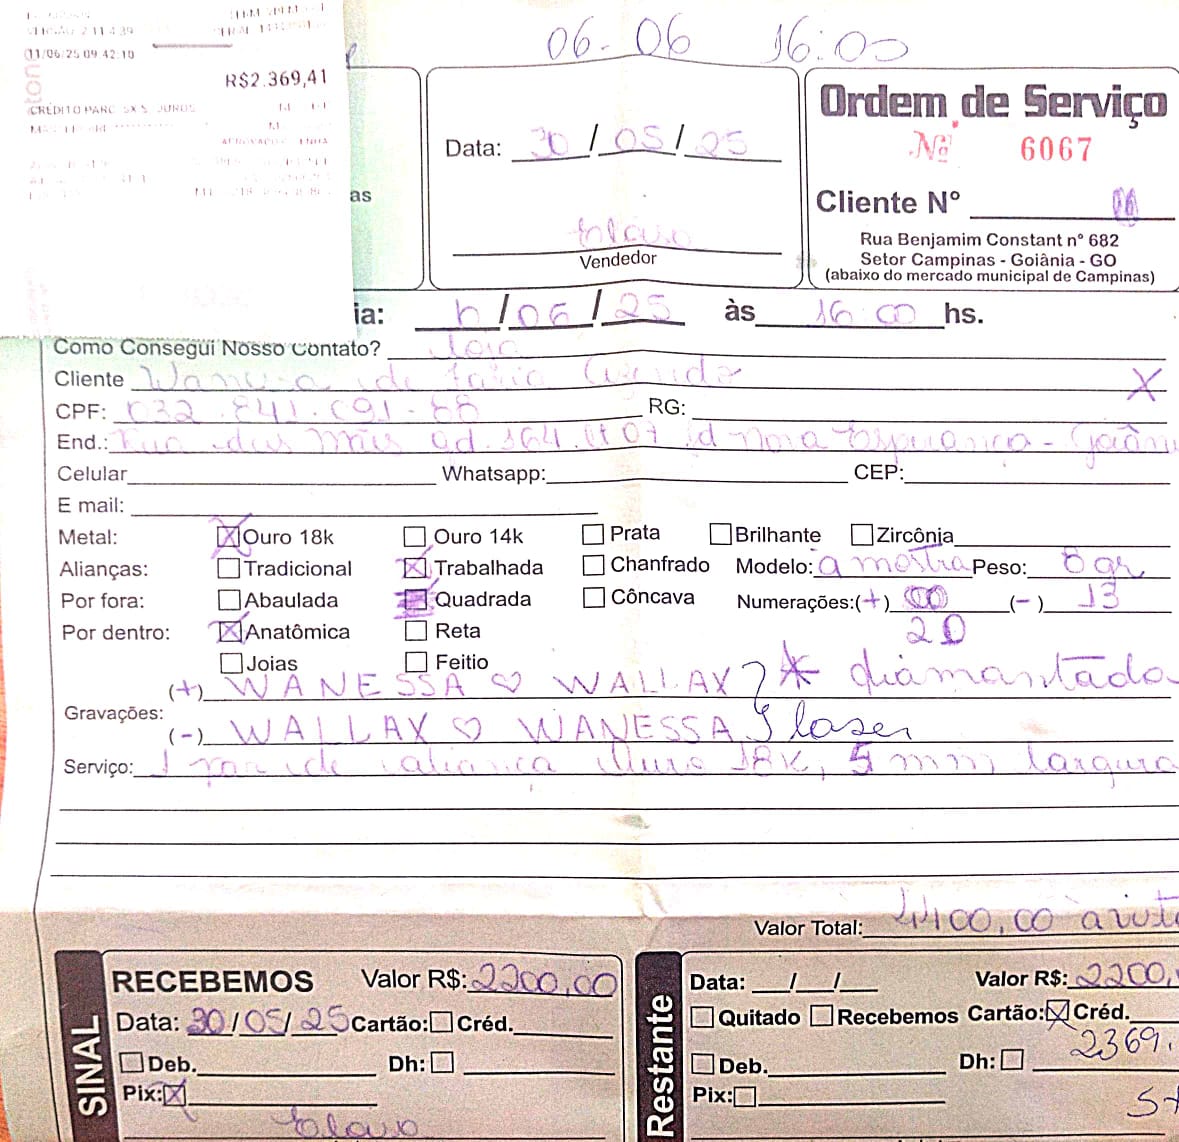 06-06 16:00
11/06/25 09:42:10
R$2.369,41
CRÉDITO PARC 5X S JUROS
as
Data: 30/05/25
Vendedor
Ordem de Serviço
Nº 6067
Cliente Nº 06
Rua Benjamim Constant nº 682
Setor Campinas - Goiânia - GO
(abaixo do mercado municipal de Campinas)
ia: /06/25 às 16:00 hs.
Como Consegui Nosso Contato? Loja
Cliente de Faria
CPF: 032.841.091-88 RG:
End.: Rua das Mãis qd. 164 lt 07 Jd nova Esperança - Goiâni
Celular Whatsapp: CEP:
E mail:
Metal: X Ouro 18k Ouro 14k Prata Brilhante Zircônia
Alianças: Tradicional X Trabalhada Chanfrado Modelo: a mostra Peso: 8gr
Por fora: Abaulada Quadrada Côncava Numerações:(+) (-) 13
20
Por dentro: X Anatômica Reta
Joias Feitio
(+) WANESSA ♡ WALLAX * diamantado
Gravações:
(-) WALLAX ♡ WANESSA laser
Serviço: 1 par de aliança Ouro 18K, 5 mm largura
Valor Total: 4400,00 a vist
SINAL
RECEBEMOS Valor R$: 2200,00
Data: 30/05/25 Cartão: Créd.
Deb. Dh:
Pix: X
Restante
Data: / / Valor R$: 2200,
Quitado Recebemos Cartão: X Créd.
2369.
Deb. Dh:
Pix: 5x